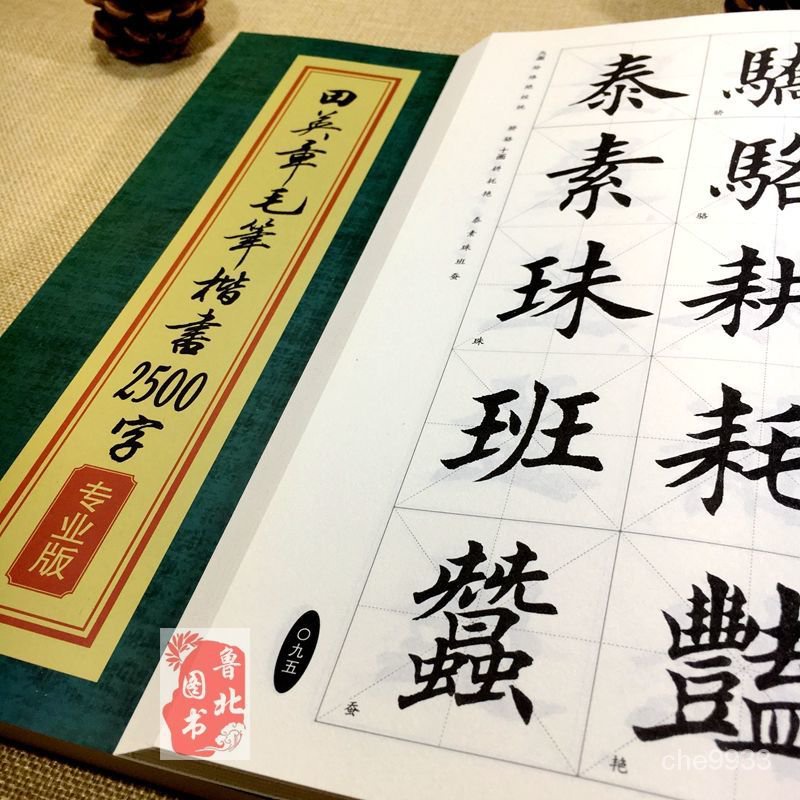 田英章毛筆楷書2500字
专业版
九画
骄 骆 十画 耕 耗 艳
泰 素 珠 班 蚕
驕
骄
駱
骆
耕
耗
豔
艳
泰
素
珠
珠
班
蠶
蚕
〇九五
鲁北
图书
che9933